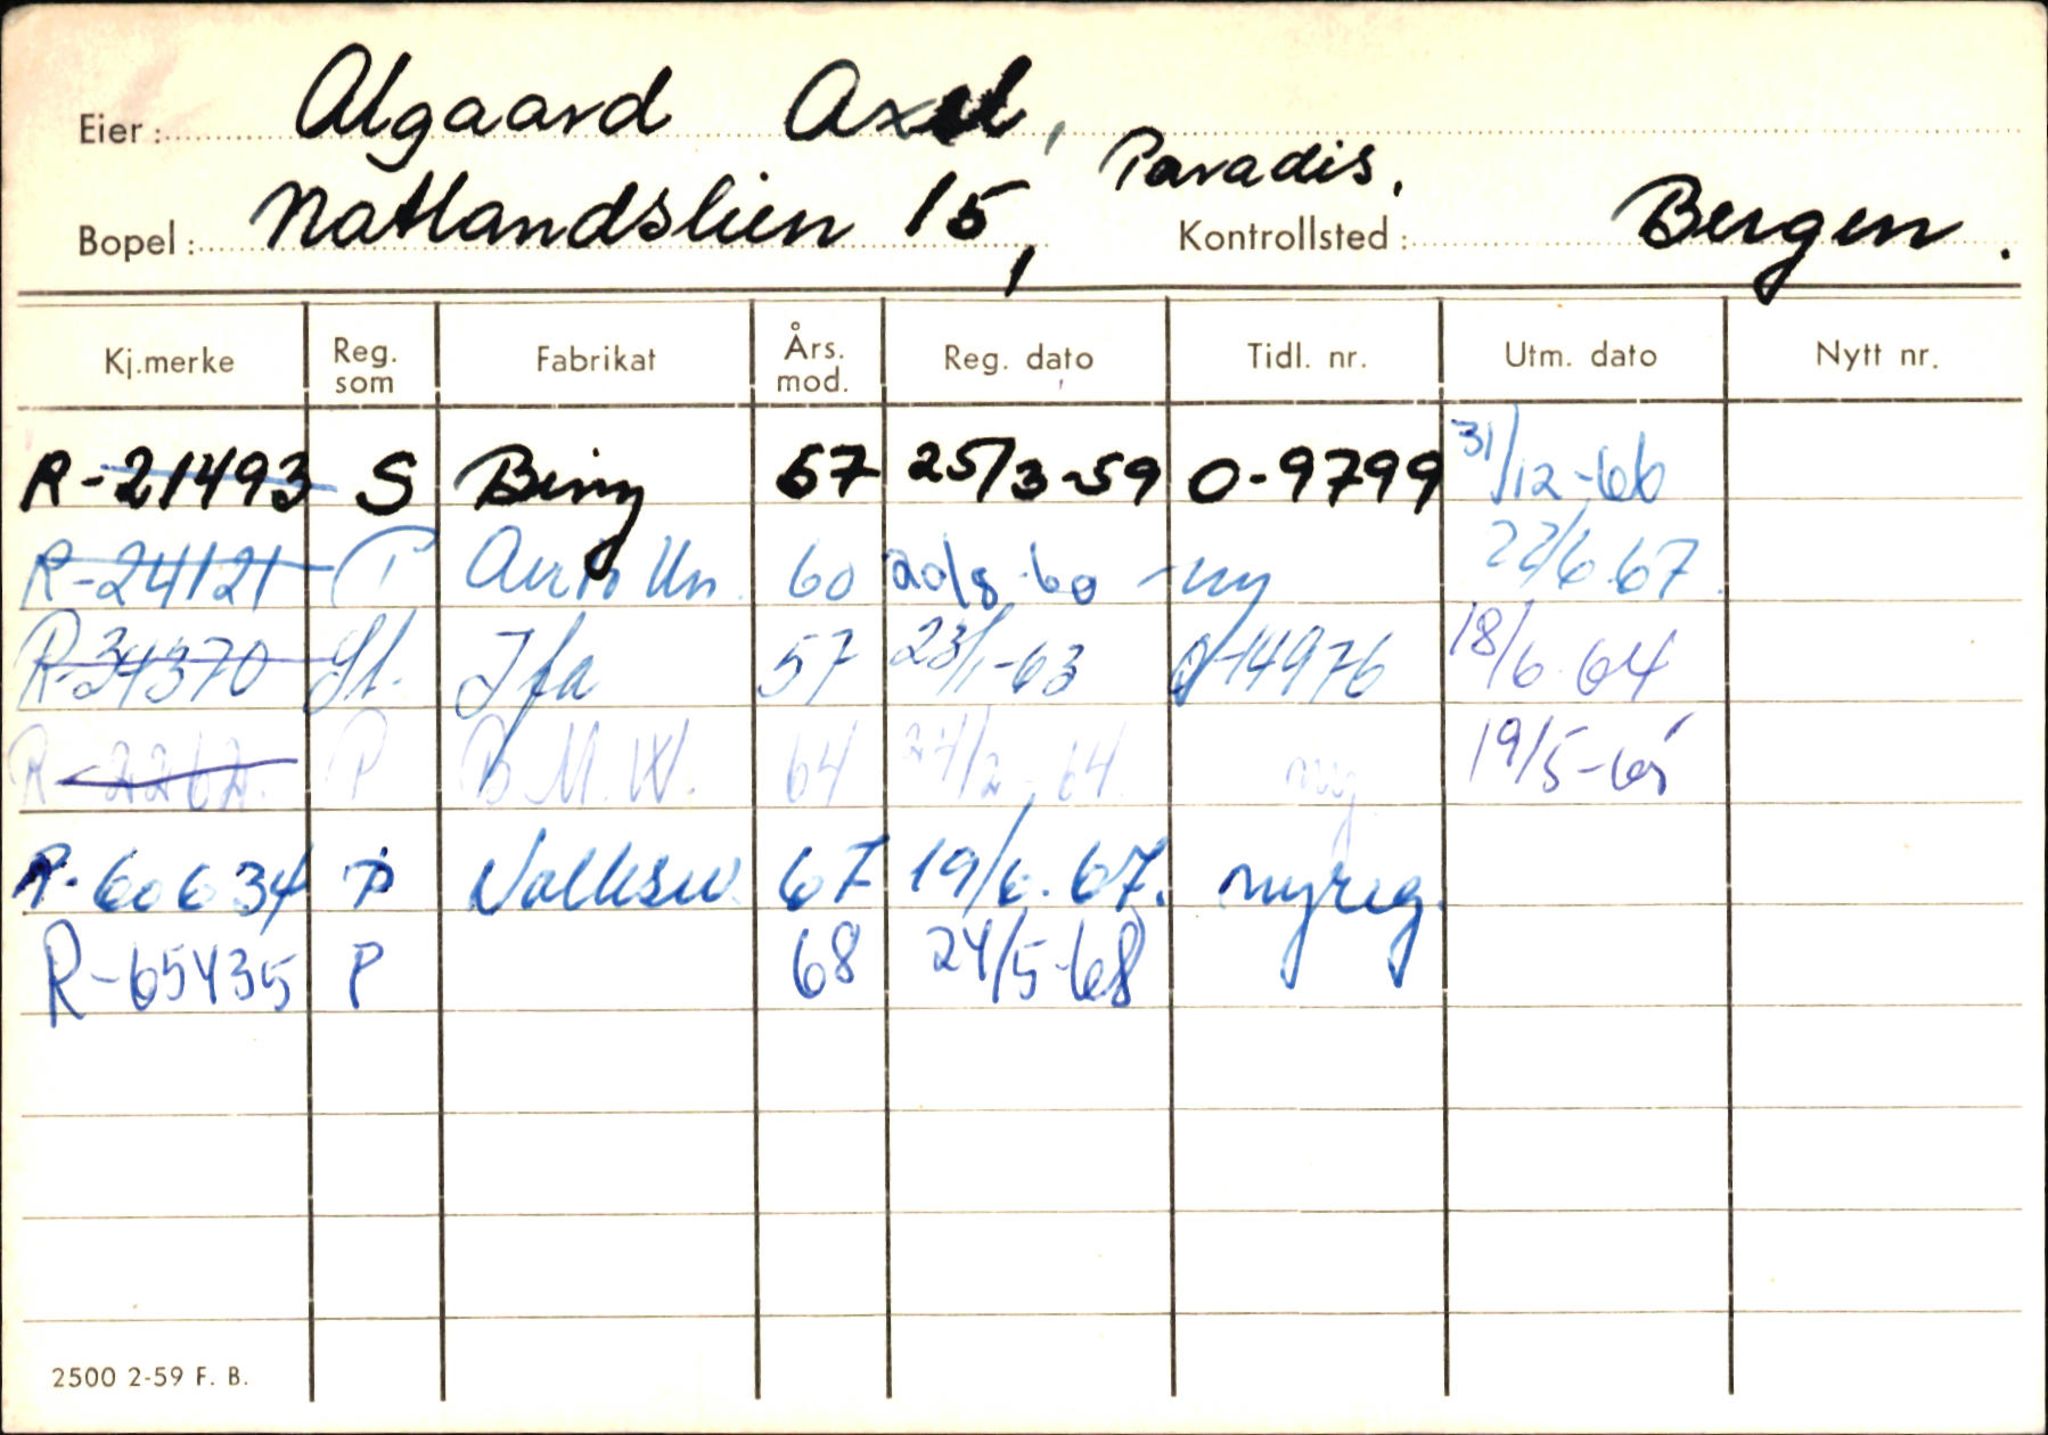 Eier: Algaard Axel,
Paradis.
Bopel: Natlandslien 15, Kontrollsted: Bergen.
Kj.merke Reg. som Fabrikat Års. mod. Reg. dato Tidl. nr. Utm. dato Nytt nr.
R-21493 S Bing 57 25/3-59 O-9799 31/12-66
R-24121 P Auto Un. 60 20/8-60 ny 22/6.67.
R-34370 St. Ifa 57 23/1-63 14976 18/6.64
R-2262. P B.M.W. 64 24/2-64. ny 19/5-65
R-60634 P Volksw. 67 19/6.67. nyreg.
R-65435 P 68 24/5-68
2500 2-59 F. B.